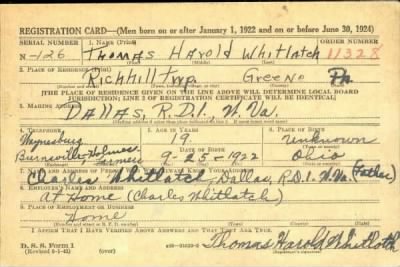 REGISTRATION CARD—(Men born on or after January 1, 1922 and on or before June 30, 1924)
SERIAL NUMBER 1. NAME (Print) ORDER NUMBER
N-126 Thomas Harold Whitlatch 11328
(First) (Middle) (Last)
2. PLACE OF RESIDENCE (Print)
Richhill Twp. Greene Pa.
[THE PLACE OF RESIDENCE GIVEN ON THE LINE ABOVE WILL DETERMINE LOCAL BOARD
JURISDICTION; LINE 2 OF REGISTRATION CERTIFICATE WILL BE IDENTICAL]
3. MAILING ADDRESS
Dallas, R.D.1. W. Va.
4. TELEPHONE 5. AGE IN YEARS 6. PLACE OF BIRTH
Waynesburg 19 Unknown
DATE OF BIRTH
Burnsville Holmes 9-25-1922 Ohio
Farmer
7. NAME AND ADDRESS OF PERSON WHO WILL ALWAYS KNOW YOUR ADDRESS
Charles Whitlatch, Dallas, R.D.1. W. Va. (Father)
8. EMPLOYER'S NAME AND ADDRESS
At Home (Charles Whitlatch)
9. PLACE OF EMPLOYMENT OR BUSINESS
Home
I AFFIRM THAT I HAVE VERIFIED ABOVE ANSWERS AND THAT THEY ARE TRUE.
D. S. S. Form 1
(over)
Thomas Harold Whitlatch